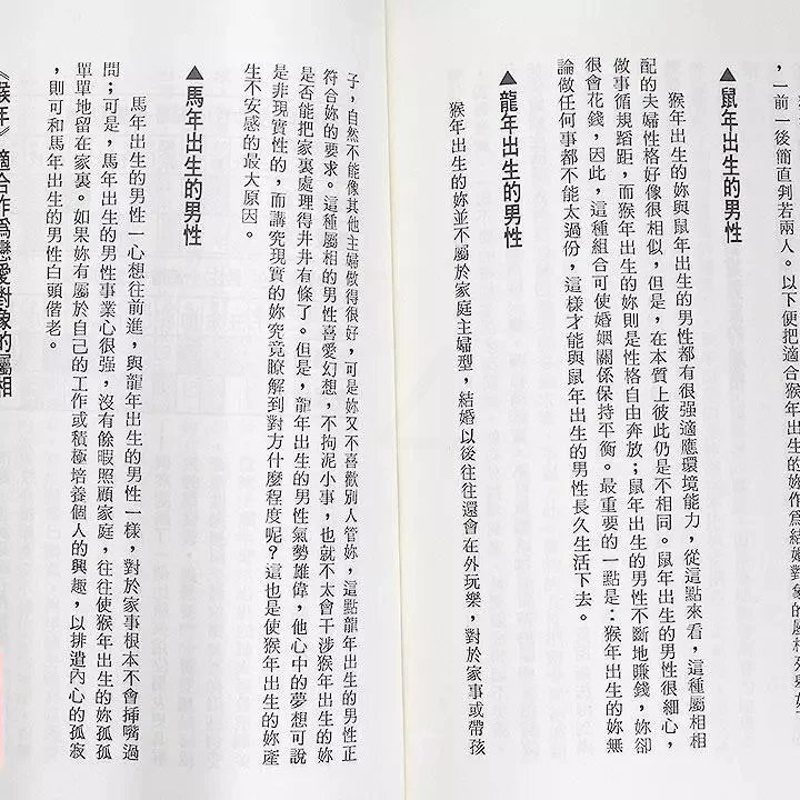 ，一前一後簡直判若兩人。以下便把適合猴年出生的妳作為結婚對象的屬相
▲鼠年出生的男性
猴年出生的妳與鼠年出生的男性都有很强適應環境能力，從這點來看，這種屬相相
配的夫婦性格好像很相似，但是，在本質上彼此仍是不相同。鼠年出生的男性很細心，
做事循規蹈距，而猴年出生的妳則是性格自由奔放；鼠年出生的男性不斷地賺錢，妳卻
很會花錢，因此，這種組合可使婚姻關係保持平衡。最重要的一點是：猴年出生的妳無
論做任何事都不能太過份，這樣才能與鼠年出生的男性長久生活下去。
▲龍年出生的男性
猴年出生的妳並不屬於家庭主婦型，結婚以後往往還會在外玩樂，對於家事或帶孩
子，自然不能像其他主婦做得很好，可是妳又不喜歡別人管妳，這點龍年出生的男性正
符合妳的要求。這種屬相的男性喜愛幻想，不拘泥小事，也就不太會干涉猴年出生的妳
是否能把家裏處理得井井有條了。但是，龍年出生的男性氣勢雄偉，他心中的夢想可說
是非現實性的，而講究現實的妳究竟瞭解到對方什麼程度呢？這也是使猴年出生的妳產
生不安感的最大原因。
▲馬年出生的男性
馬年出生的男性一心想往前進，與龍年出生的男性一樣，對於家事根本不會挿嘴過
問；可是，馬年出生的男性事業心很强，沒有餘暇照顧家庭，往往使猴年出生的妳孤孤
單單地留在家裏。如果妳有屬於自己的工作或積極培養個人的興趣，以排遣內心的孤寂
，則可和馬年出生的男性白頭偕老。
《猴年》適合作為戀愛對像的屬相